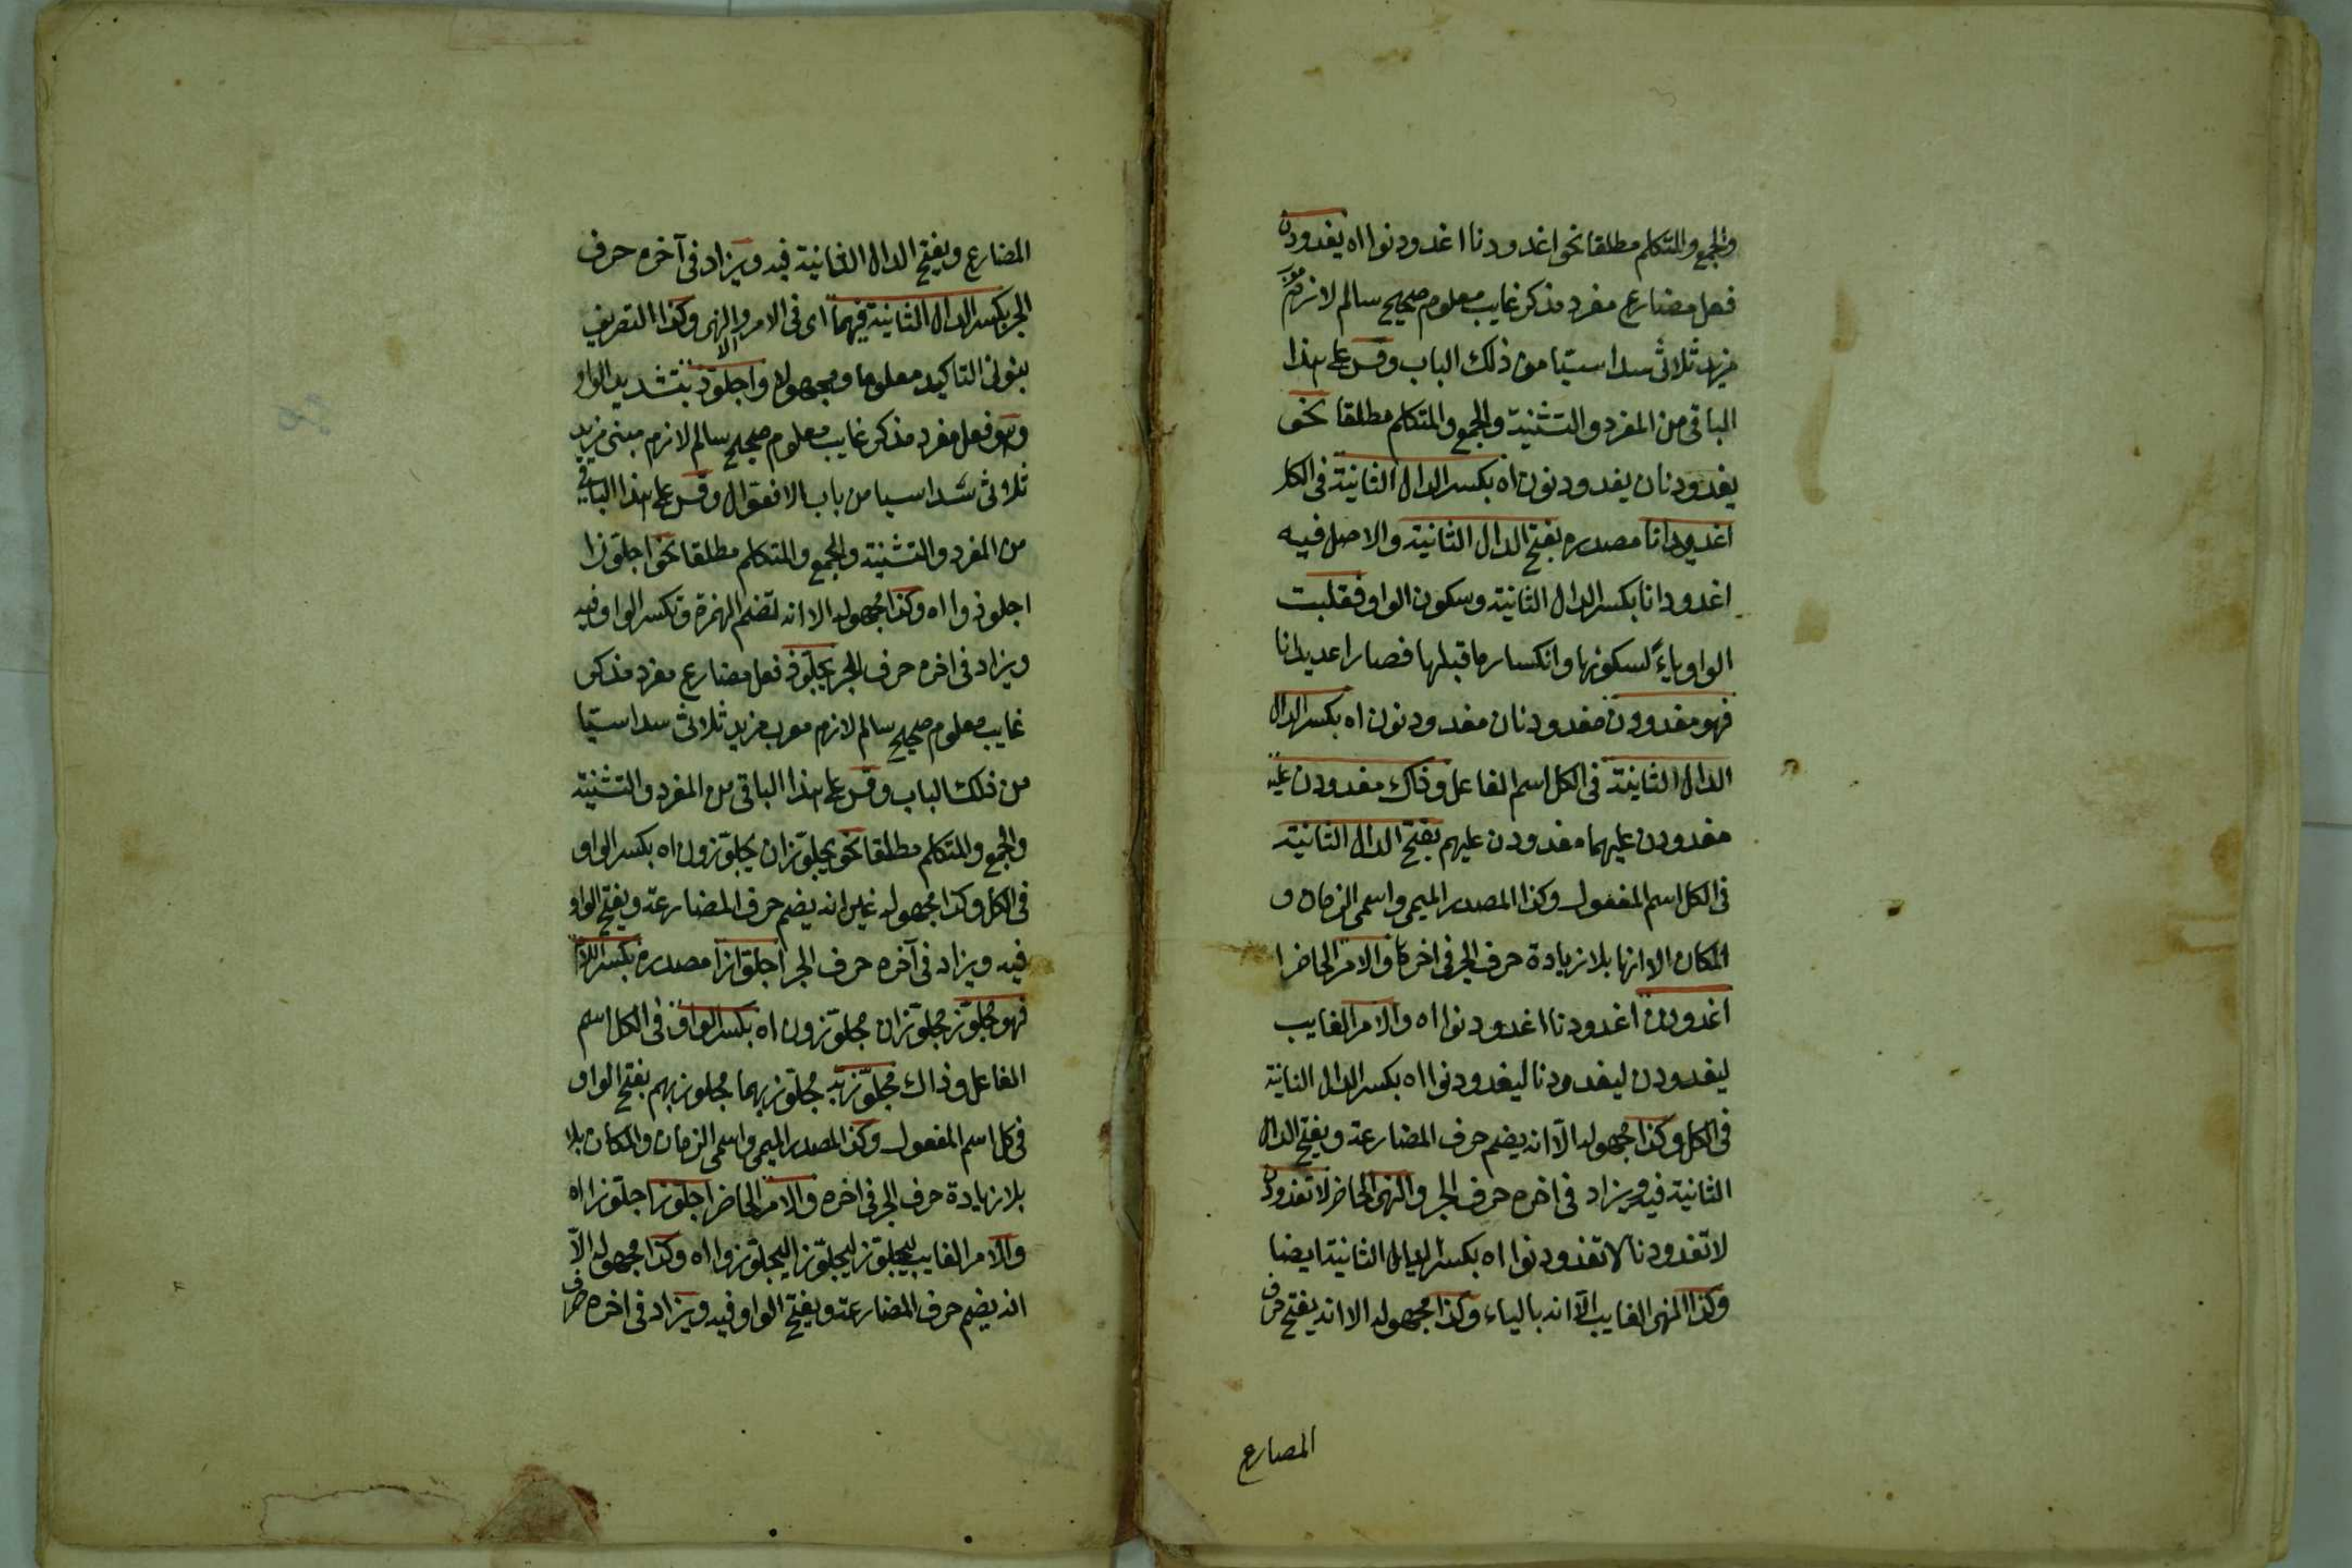 والجمع والمتكلم مطلقا نحو اغدودنا اغدودنوا اه يغدودن
فعل مضارع مفرد مذكر غايب معلوم صحيح سالم لازم معرب
مزيد ثلاثى سداسيا من ذلك الباب وقس على هذا
الباقى من المفرد والتثنية والجمع والمتكلم مطلقا نحو
يغدودنان يغدودنون اه بكسر الدال الثانية فى الكل
اغديدانا مصدره بفتح الدال الثانية والاصل فيه
اغدودانا بكسر الدال الثانية وسكون الواو فقلبت
الواو ياءً لسكونها وانكسار ما قبلها فصار اغديدانا
فهو مغدودن مغدودنان مغدودنون اه بكسر الدال
الدال الثانية فى الكل اسم الفاعل وذاك مغدودن عليه
مغدودن عليهما مغدودن عليهم بفتح الدال الثانية
فى الكل اسم المفعول وكذا المصدر الميمى واسمى الزمان و
المكان الا انها بلا زيادة حرف الجر فى اخرها والامر الحاضر ا
اغدودن اغدودنا اغدودنوا اه والامر الغايب
ليغدودن ليغدودنا ليغدودنوا اه بكسر الدال الثانية
فى الكل وكذا مجهوله الّا انه يضم حرف المضارعة ويفتح الدال
الثانية فيه ويزاد فى اخره حرف الجر والنهى الحاضر لا تغدودن
لا تغدودنا لا تغدودنوا اه بكسر الدال الثانية ايضا
وكذا النهى الغايب الّا انه بالياء وكذا مجهوله الا انه يفتح حرف
المضارع
المضارع ويفتح الدال الثانية فيه ويزاد فى آخره حرف
الجر بكسر الدال الثانية فيهما اى فى الامر والنهى وكذا التصريف
بنونى التاكيد معلوما ومجهولا واجلوّذ بتشديد الواو
وهو فعل مفرد مذكر غايب معلوم صحيح سالم لازم مبنى مزيد
ثلاثى سداسيا من باب الافعوّال وقس على هذا الباقى
من المفرد والتثنية والجمع والمتكلم مطلقا نحو اجلوّزا
اجلوذوا اه وكذا مجهوله الا انه تضم الهمزة وتكسر الواو فيه
ويزاد فى اخره حرف الجر يجلوّذ فعل مضارع مفرد مذكر
غايب معلوم صحيح سالم لازم معرب مزيد ثلاثى سداسيا
من ذلك الباب وقس على هذا الباقى من المفرد والتثنية
والجمع والمتكلم مطلقا نحو يجلوّزان يجلوّزون اه بكسر الواو
فى الكل وكذا مجهوله غير انه يضم حرف المضارعة ويفتح الواو
فيه ويزاد فى آخره حرف الجر اجلوّازا مصدره بكسر اللام
فهو مجلوّز مجلوّزان مجلوّزون اه بكسر الواو فى الكل اسم
الفاعل وذاك مجلوّز به مجلوّز بهما مجلوز بهم بفتح الواو
فى كل اسم المفعول وكذا المصدر الميمى واسمى الزمان والمكان بلا
بلا زيادة حرف الجر فى اخره والامر الحاضر اجلوّز اجلوّزا اه
والامر الغايب ليجلوّز ليجلوّزا ليجلوّزوا اه وكذا مجهوله الّا
انه يضم حرف المضارعة ويفتح الواو فيه ويزاد فى اخره حرف